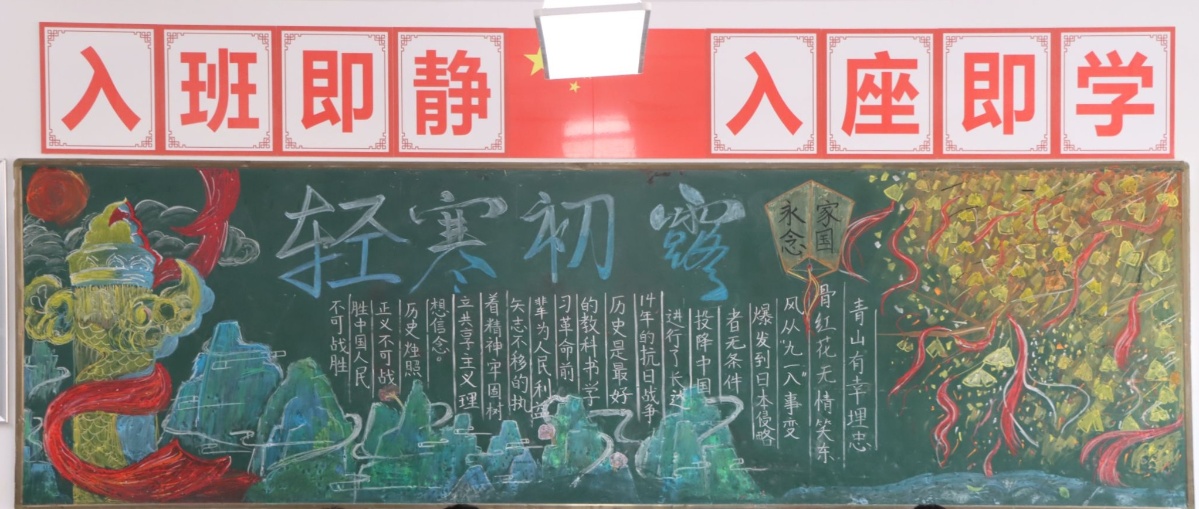 入班即静
入座即学
轻寒初露
家国
永念
青山有幸埋忠
骨红花无情笑东
风从“九一八”事变
爆发到日本侵略
者无条件
投降中国
进行了长达
14年的抗日战争
历史是最好
的教科书学
习革命前
辈为人民利益
矢志不移的执
着精神牢固树
立共产主义理
想信念。
历史烛照
正义不可战
胜中国人民
不可战胜